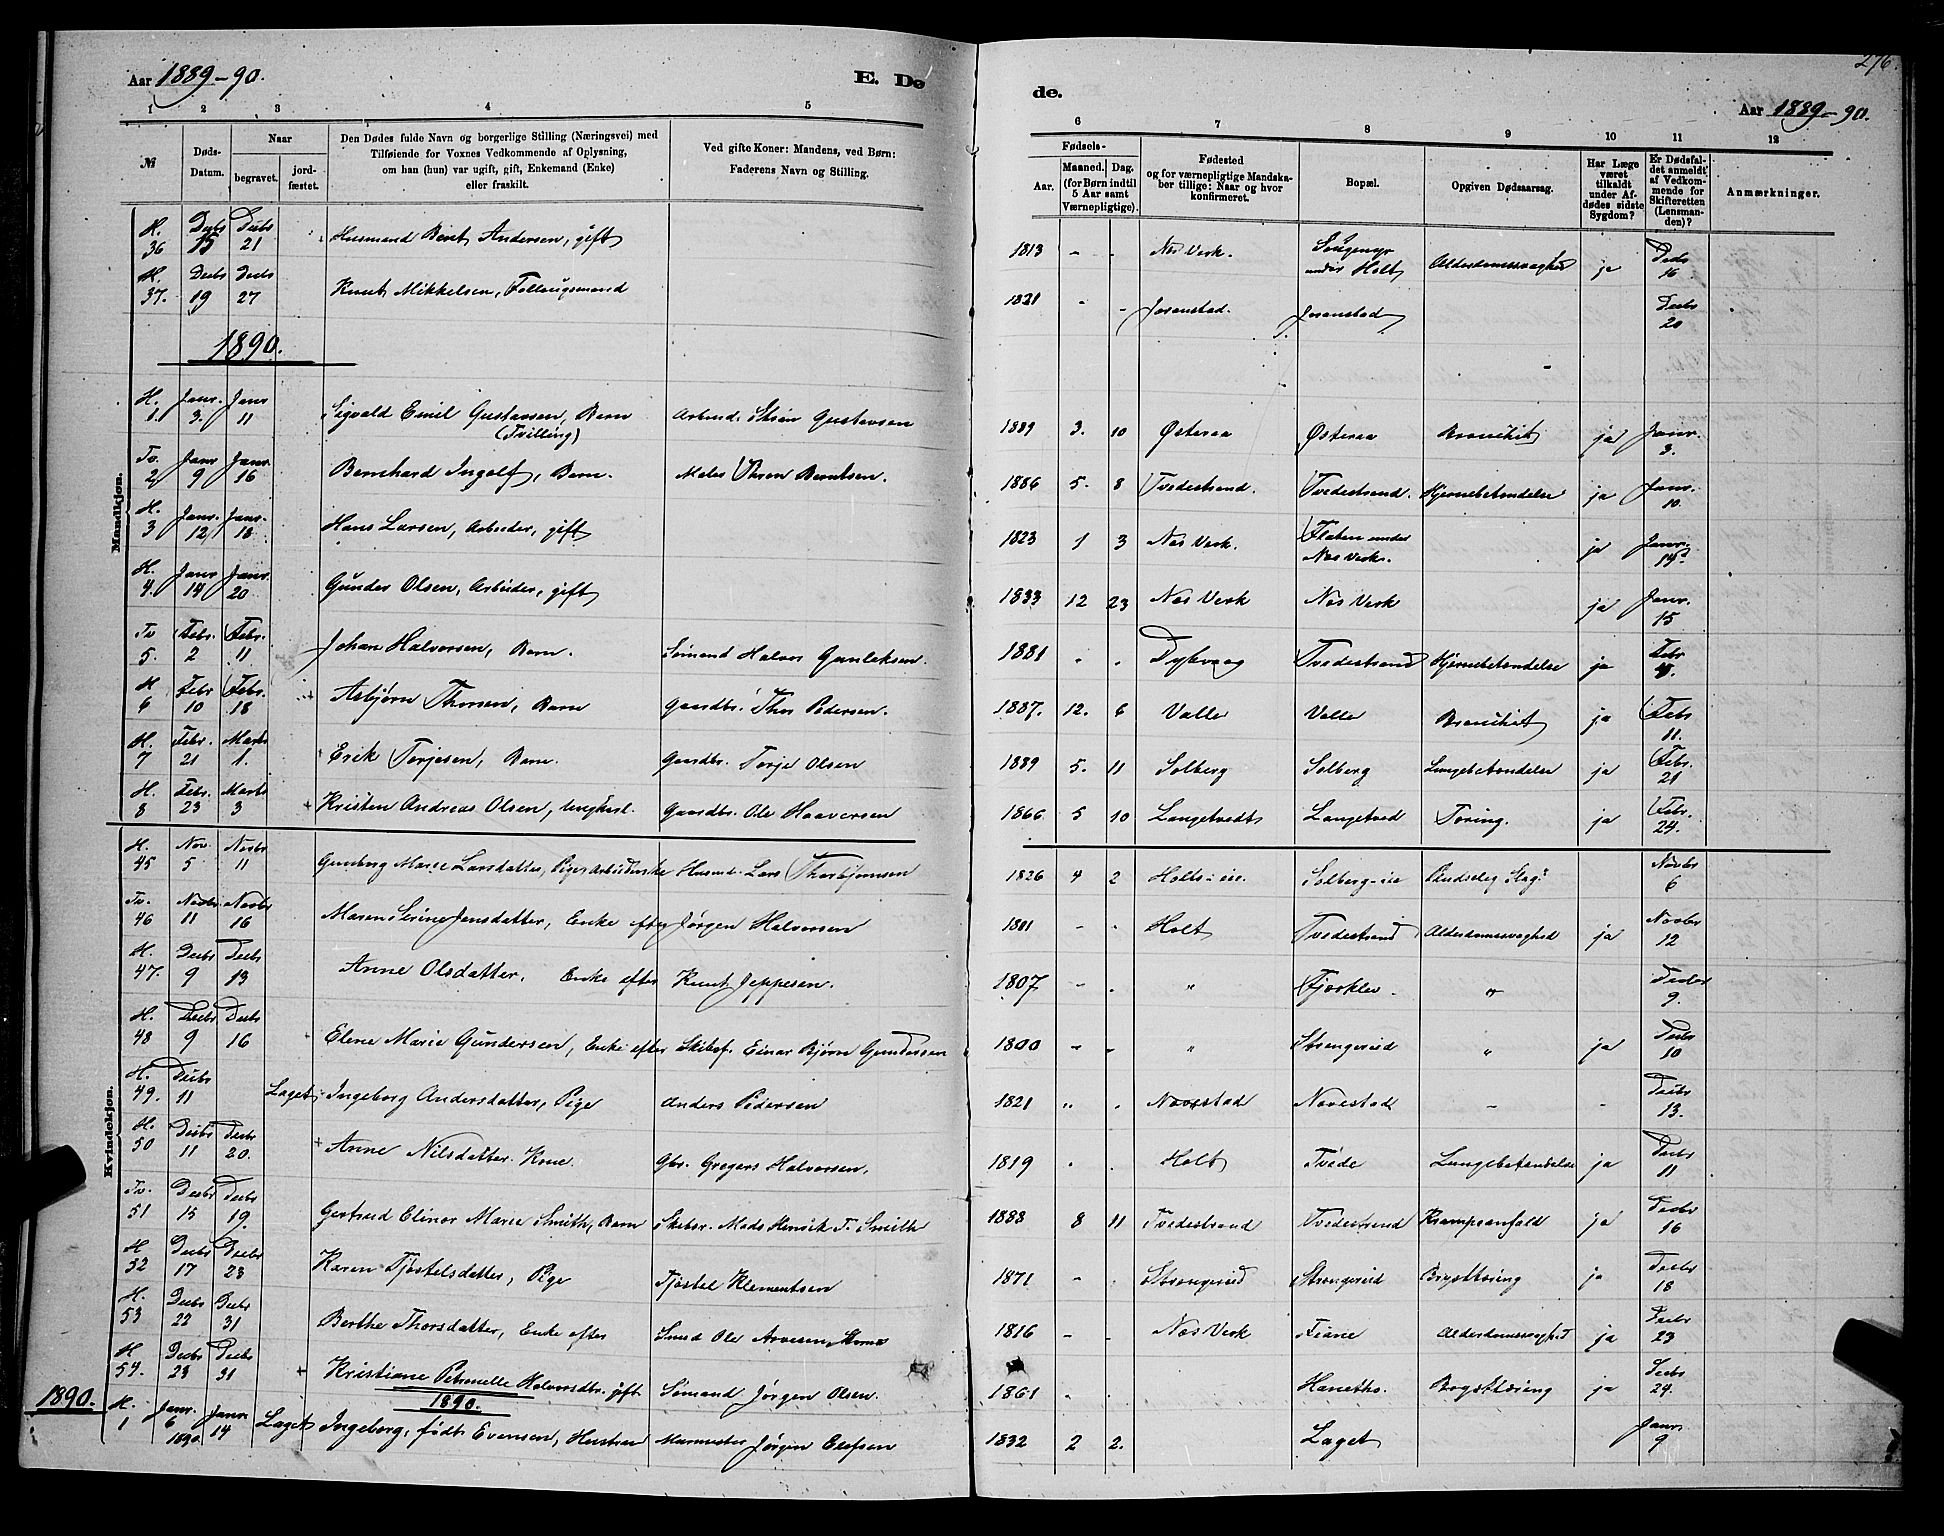 276.
Aar 1889-90. E. Dø de. Aar 1889-90.
1 2 3 4 5 6 7 8 9 10 11 12
№ Døds-Datum. Naar begravet. jord-fæstet. Den Dødes fulde Navn og borgerlige Stilling (Næringsvei) med Tilføiende for Voxnes Vedkommende af Oplysning, om han (hun) var ugift, gift, Enkemand (Enke) eller fraskilt. Ved gifte Koner: Mandens, ved Børn: Faderens Navn og Stilling. Fødsels- Aar. Maaned. Dag. (for Børn indtil 5 Aar samt Værnepligtige). Fødested og for værnepligtige Mandskaber tillige: Naar og hvor konfirmeret. Bopæl. Opgiven Dødsaarsag. Har Læge været tilkaldt under Afdødes sidste Sygdom? Er Dødsfaldet anmeldt af Vedkommende for Skifteretten (Lensmanden)? Anmærkninger.
Mandkjøn.
H. 36 Decbr 15 Decbr 21 Husmand Berit Andersen, gift 1813 - - Nes Verk. under Holt Alderdomssvaghed ja Decbr 16
H. 37. Decbr 19 Decbr 27 Knut Mikkelsen, Follaugsmand 1821 - - Joranstad. Joranstad Decbr 20
1890.
H. 1. Janr. 3. Janr 11 Sigvald Emil Gustavsen, Barn (Tvilling) Arbeid. Gustavsen 1889 3. 10 Østeraa Østeraa Bronchit ja Janr. 3.
Tv. 2 Janr 9 Janr. 16 Bernhard Ingolf, Barn. Maler Berntsen. 1886 5. 8 Tvedestrand. Tvedestrand. Hjernebetændelse ja Janr. 10.
H. 3 Janr. 12 Janr. 18 Hans Larsen, Arbeider, gift 1823 1 3 Nes Verk. Flaten under Nes Verk. ja Janr. 14.
H. 4. Janr 14 Janr. 20 Gunder Olsen, Arbeider, gift 1833 12 23 Nes Verk Nes Verk ja Janr. 15
Tv 5. Febr. 2 Febr. 11 Johan Halvorsen, Barn. Sømand Halvor Gunlaksen. 1881 . . Dybvaag Tvedestrand Hjernebetændelse ja Febr
H 6 Febr 10 Febr. 18 Asbjørn Thorsen, Barn Gaardbr. Thor Pedersen. 1887. 12. 6 Valle Valle Bronchit ja Febr 11.
H. 7 Febr. 21 Marts 1. + Erik Torjesen, Barn. Gaardbr. Torje Olsen 1889 5. 11 Solberg Solberg Lungebetændelse ja Febr. 21
H. 8 Febr. 23 Marts 3 + Kristen Andreas Olsen, Ungkarl. Gaardbr. Ole Haaversen 1866 5 10 Langetvedt Langetved Tæring. ja Febr. 24.
Kvindekjøn.
H. 45 Nov. 5 Novbr 11 Gunborg Marie Larsdatter, Pige, Arbeiderske Husmd. Lars Thorbjørnsen 1826 4 2 Holts-eie. Solberg-eie Pludselig Slag. Novbr 6
Tv. 46 Novbr 11 Novbr 16 Maren Serine Jensdatter, Enke efter Jørgen Halvorsen 1801 - . Holt Tvedestrand Alderdomssvaghed ja Novbr 12
H. 47. Decbr 9 Decbr 13 Anne Olsdatter. Enke efter Knut Jeppesen. 1807 . . " Fjærklev. " Decbr 9.
H. 48 Decbr 9 Decbr 16 Elene Marie Gundersen, Enke efter Skibsf. Einar Bjørn Gundersen 1800 - - " Strengereid " ja Decbr 10
H. 49. Decbr 11 Laget Ingeborg Andersdatter, Pige Anders Pedersen 1821 .. . Navestad Navestad - - Decbr 13.
H. 50 Decbr 11 Decbr 20. + Anne Nilsdatter. Kone. Gbr. Gregers Halvorsen. 1819 . . Holt Tvede Lungebetændelse ja Decbr 11
Tv. 51 Decbr 15 Decbr 19. Gertrud Elinor Marie Smith, Barn Skibsr. Mads Henrik F. Smith 1888 8 11 Tvedestrand Tvedestrand Krampeanfald ja Decbr 16
H. 52 Decbr 17 Decbr 23 Karen Tjøstelsdatter, Pige Tjøstel Klementsen 1871 - . Strengereid Strengereid Brysttæring ja Decbr 18
H. 53 Decbr 22 Decbr 31 Berthe Thorsdatter, Enke efter Smed Ole Arvesen 1816 - - Nes Verk Fiane Alderdomssvaghed ja Decbr 23
H 54. Decbr 23 Decbr 31 + Kristiane Petronelle Halvorsdtr. gift Sømand Jørgen Olsen. 1861 . Haneths. Brysttæring ja Decbr 24.
1890. 1890.
H. 1 Janr. 6 1890. Janr. 14 Laget Ingeborg, født Evensen, Hustru Murmester Jørgen Elefsen 1832 2 2. Laget Janr 9